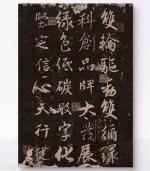 雙輪驅動雙循環
科創品牌大發展
綠色低碳數字化
堅定信心天行健